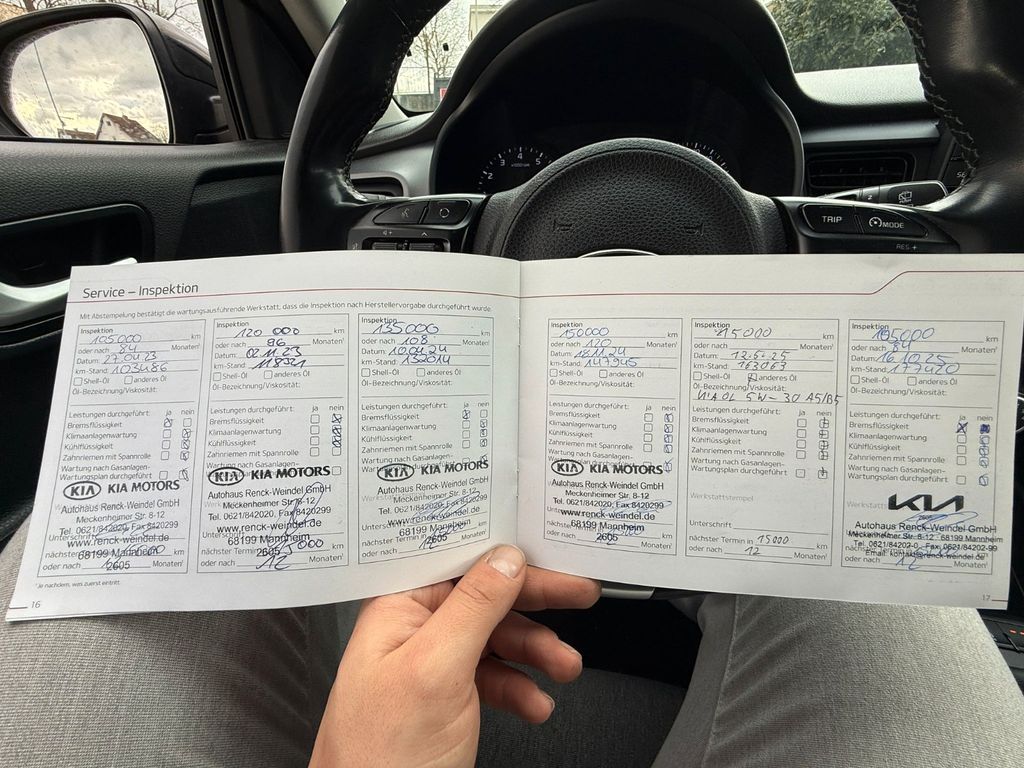 2 3 4 5
TRIP
MODE
RES +
Service – Inspektion
Mit Abstempelung bestätigt die wartungsausführende Werkstatt, dass die Inspektion nach Herstellervorgabe durchgeführt wurde.
Inspektion
105000 km
oder nach 84 Monaten¹
Datum: 27.04.23
km-Stand: 103486
Shell-Öl anderes Öl
Öl-Bezeichnung/Viskosität:
Leistungen durchgeführt: ja nein
Bremsflüssigkeit
Klimaanlagenwartung
Kühlflüssigkeit
Zahnriemen mit Spannrolle
Wartung nach Gasanlagen-
Wartungsplan durchgeführt
KIA KIA MOTORS
Autohaus Renck-Weindel GmbH
Meckenheimer Str. 8-12
Tel. 0621/842020, Fax 8420299
www.renck-weindel.de
68199 Mannheim
2605
oder nach Monaten¹
Inspektion
120 000 km
oder nach 96 Monaten¹
Datum: 02.11.23
km-Stand: 118321
Shell-Öl anderes Öl
Öl-Bezeichnung/Viskosität:
Leistungen durchgeführt: ja nein
Bremsflüssigkeit
Klimaanlagenwartung
Kühlflüssigkeit
Zahnriemen mit Spannrolle
Wartung nach Gasanlagen-
KIA KIA MOTORS
Autohaus Renck-Weindel GmbH
Meckenheimer Str. 8-12
Tel. 0621/842020, Fax 8420299
www.renck-weindel.de
68199 Mannheim
2605
oder nach 12 Monaten¹
Inspektion
135000 km
oder nach 108 Monaten¹
Datum: 10.04.24
km-Stand: 132014
Shell-Öl anderes Öl
Öl-Bezeichnung/Viskosität:
Leistungen durchgeführt: ja nein
Bremsflüssigkeit
Klimaanlagenwartung
Kühlflüssigkeit
Zahnriemen mit Spannrolle
Wartung nach Gasanlagen-
KIA KIA MOTORS
Autohaus Renck-Weindel GmbH
Meckenheimer Str. 8-12
Tel. 0621/842020, Fax 8420299
www.renck-weindel.de
68199 Mannheim
2605
oder nach 12
¹ Je nachdem, was zuerst eintritt.
16
Inspektion
150000 km
oder nach 120 Monaten¹
Datum: 18.11.24
km-Stand: 147945
Shell-Öl anderes Öl
Öl-Bezeichnung/Viskosität:
Leistungen durchgeführt: ja nein
Bremsflüssigkeit
Klimaanlagenwartung
Kühlflüssigkeit
Zahnriemen mit Spannrolle
Wartung nach Gasanlagen-
KIA KIA MOTORS
Autohaus Renck-Weindel GmbH
Meckenheimer Str. 8-12
Tel. 0621/842020, Fax 8420299
www.renck-weindel.de
68199 Mannheim
2605
oder nach Monaten¹
Inspektion
15000 km
oder nach Monaten¹
Datum: 12.5.25
km-Stand: 163063
Shell-Öl anderes Öl
Öl-Bezeichnung/Viskosität:
5W-30 A5/B5
Leistungen durchgeführt: ja nein
Bremsflüssigkeit
Klimaanlagenwartung
Kühlflüssigkeit
Zahnriemen mit Spannrolle
Wartung nach Gasanlagen-
Wartungsplan durchgeführt
Werkstattstempel
Unterschrift
nächster Termin in 15000 km
oder nach 12 Monaten¹
Inspektion
km
oder nach 84 Monaten¹
Datum: 16.10.25
km-Stand: 177420
Shell-Öl anderes Öl
Öl-Bezeichnung/Viskosität:
Leistungen durchgeführt: ja nein
Bremsflüssigkeit
Klimaanlagenwartung
Kühlflüssigkeit
Zahnriemen mit Spannrolle
Wartung nach Gasanlagen-
Wartungsplan durchgeführt
KIA
Autohaus Renck-Weindel GmbH
Meckenheimer Str. 8-12, 68199 Mannheim
Tel. 0621/84202-0, Fax 0621/84202-99
Email: kontakt@renck-weindel.de
oder nach 12 Monaten¹
17